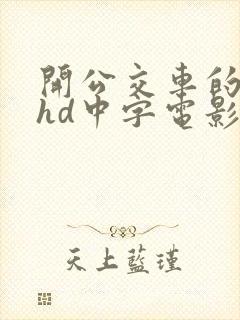 開公交車的
hd中字電影
天上藍瑾